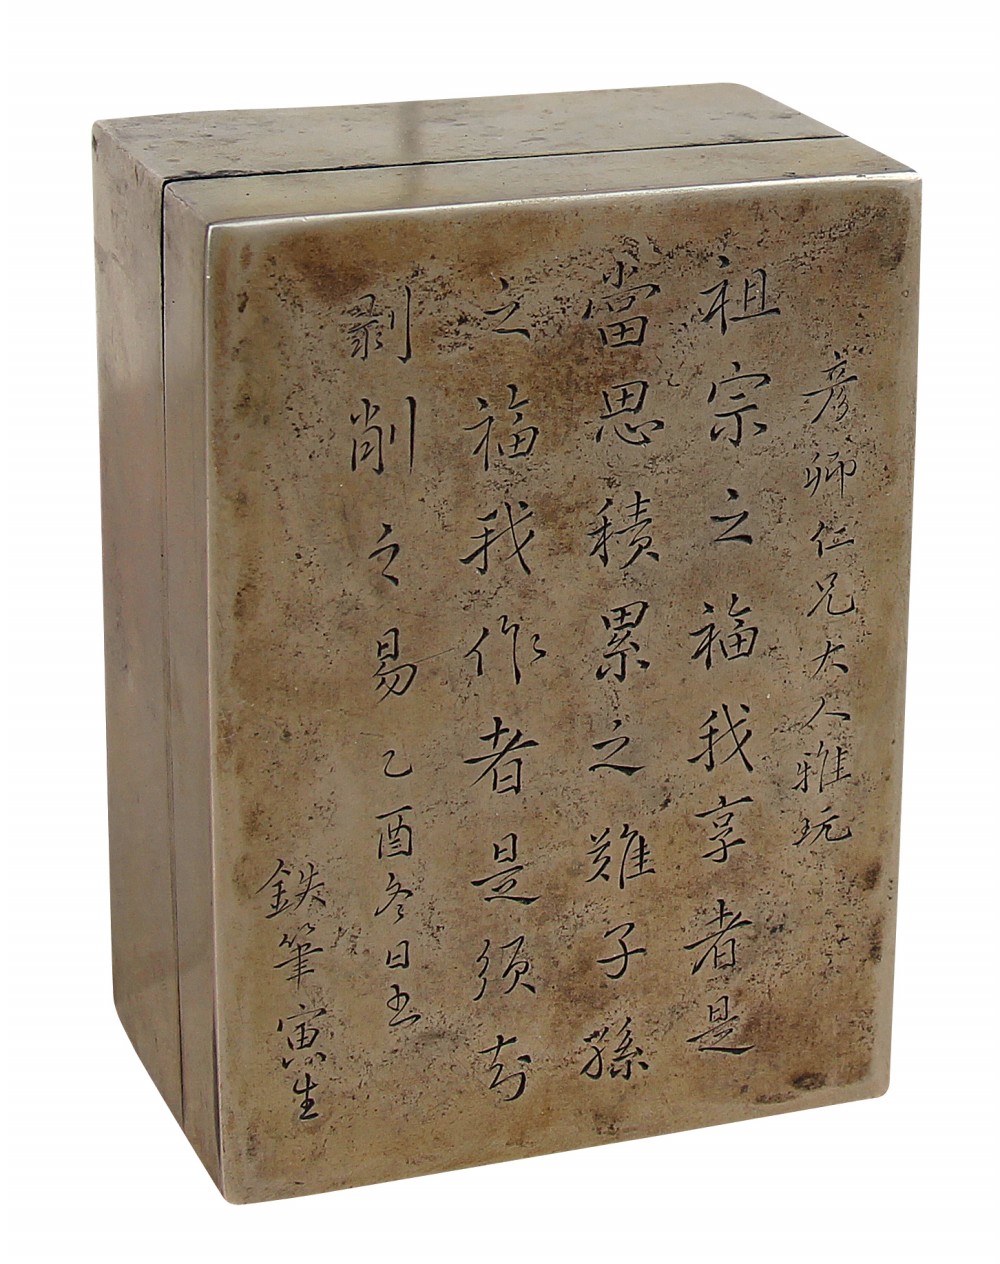 彦卿仁兄大人雅玩
祖宗之福我享者是
當思積累之難子孫
之福我作者是須知
剥削之易乙酉冬日书
鉄筆寅生